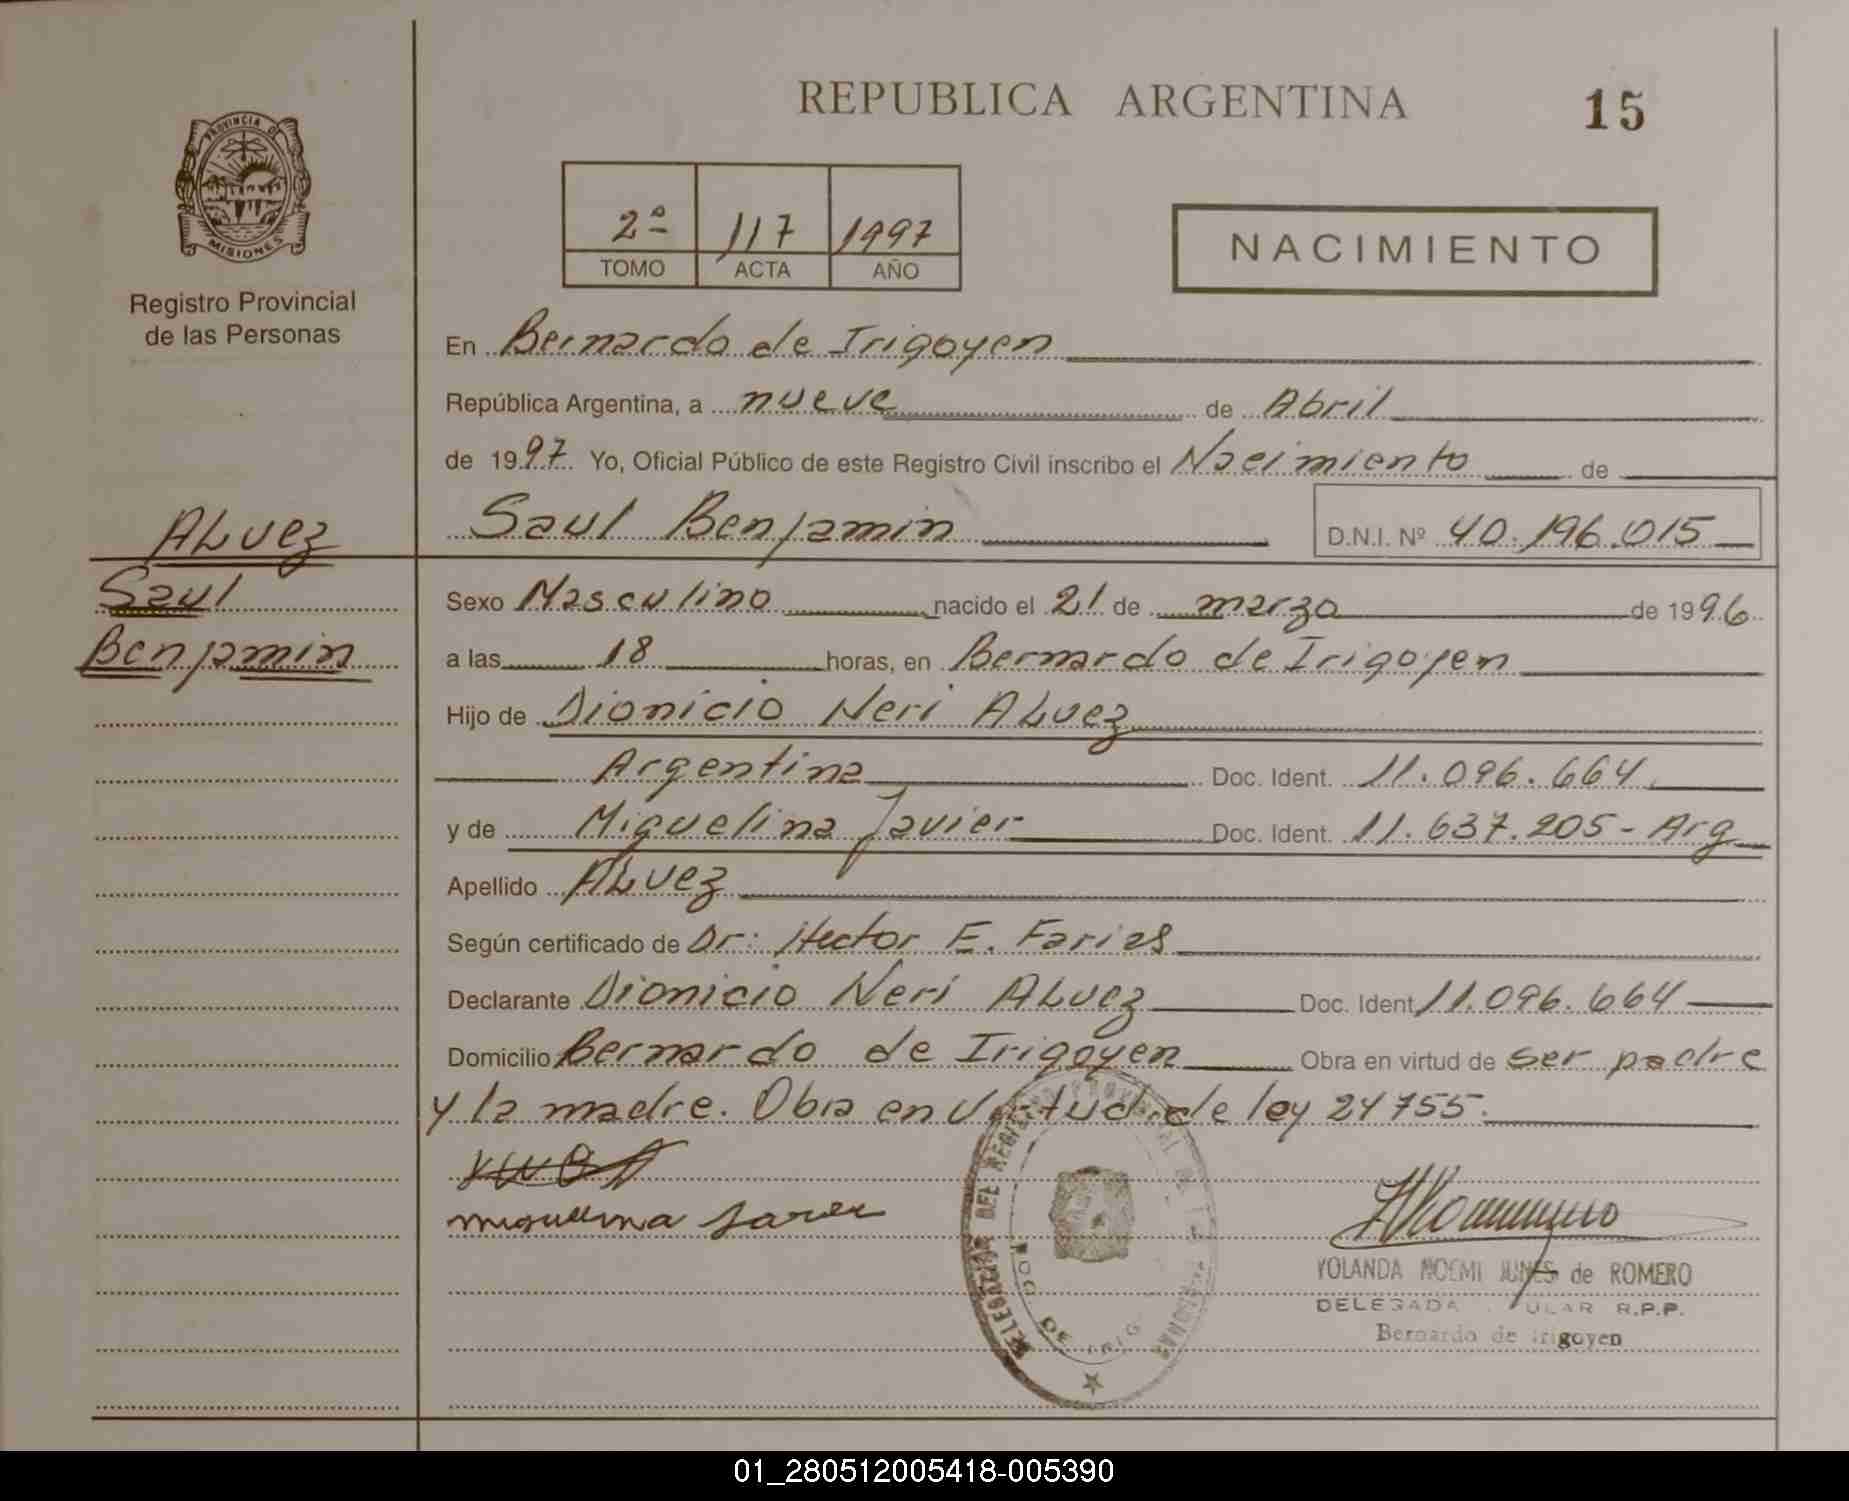 REPUBLICA ARGENTINA
15
PROVINCIA DE
MISIONES
Registro Provincial
de las Personas
2º 117 1997
TOMO ACTA AÑO
NACIMIENTO
En Bernardo de Irigoyen
República Argentina, a nueve de Abril
de 1997 Yo, Oficial Público de este Registro Civil inscribo el Nacimiento de
Saul Benjamin D.N.I. Nº 40.196.015
ALvez
Saul
Benjamin
Sexo Masculino nacido el 21 de marzo de 1996
a las 18 horas, en Bernardo de Irigoyen
Hijo de Dionicio Neri ALvez
Argentina Doc. Ident. 11.096.664
y de Miguelina Javier Doc. Ident. 11.637.205 - Arg
Apellido ALvez
Según certificado de Dr: Hector E. Farias
Declarante Dionicio Neri ALvez Doc. Ident 11.096.664
Domicilio Bernardo de Irigoyen Obra en virtud de ser padre
y la madre. Obra en virtud de ley 24755.
YOLANDA NOEMI JUNES de ROMERO
DELEGADA R.P.P.
Bernardo de Irigoyen
DEL REGISTRO PROVINCIAL DE
DE IRIG
01_280512005418-005390